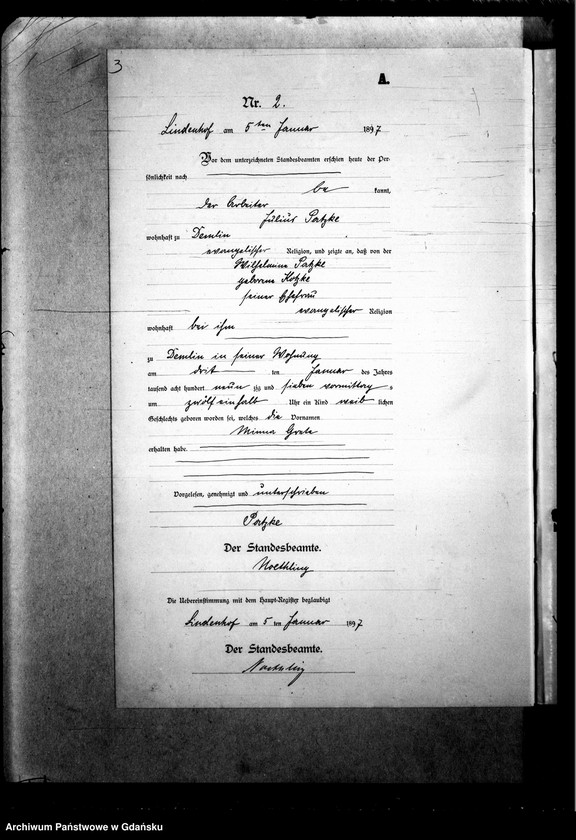 3
A.
Nr. 2.
Lindenhof am 5ten Januar 1897
Vor dem unterzeichneten Standesbeamten erschien heute der Per-
sönlichkeit nach
be kannt,
der Arbeiter
Julius Patzke
wohnhaft zu Demlin
evangelischer Religion, und zeigte an, daß von der
Wilhelmine Patzke
geborene Kotzke
seiner Ehefrau
evangelischer Religion
wohnhaft bei ihm
zu Demlin in seiner Wohnung
am drit ten Januar des Jahres
tausend acht hundert neun zig und sieben vormittag s
um zwölf einhalb Uhr ein Kind weib lichen
Geschlechts geboren worden sei, welches die Vornamen
Minna Grete
erhalten habe.
Vorgelesen, genehmigt und unterschrieben
Patzke
Der Standesbeamte.
Noethling
Die Uebereinstimmung mit dem Haupt-Register beglaubigt
Lindenhof am 5 ten Januar 1897
Der Standesbeamte.
Noethling
Archiwum Państwowe w Gdańsku